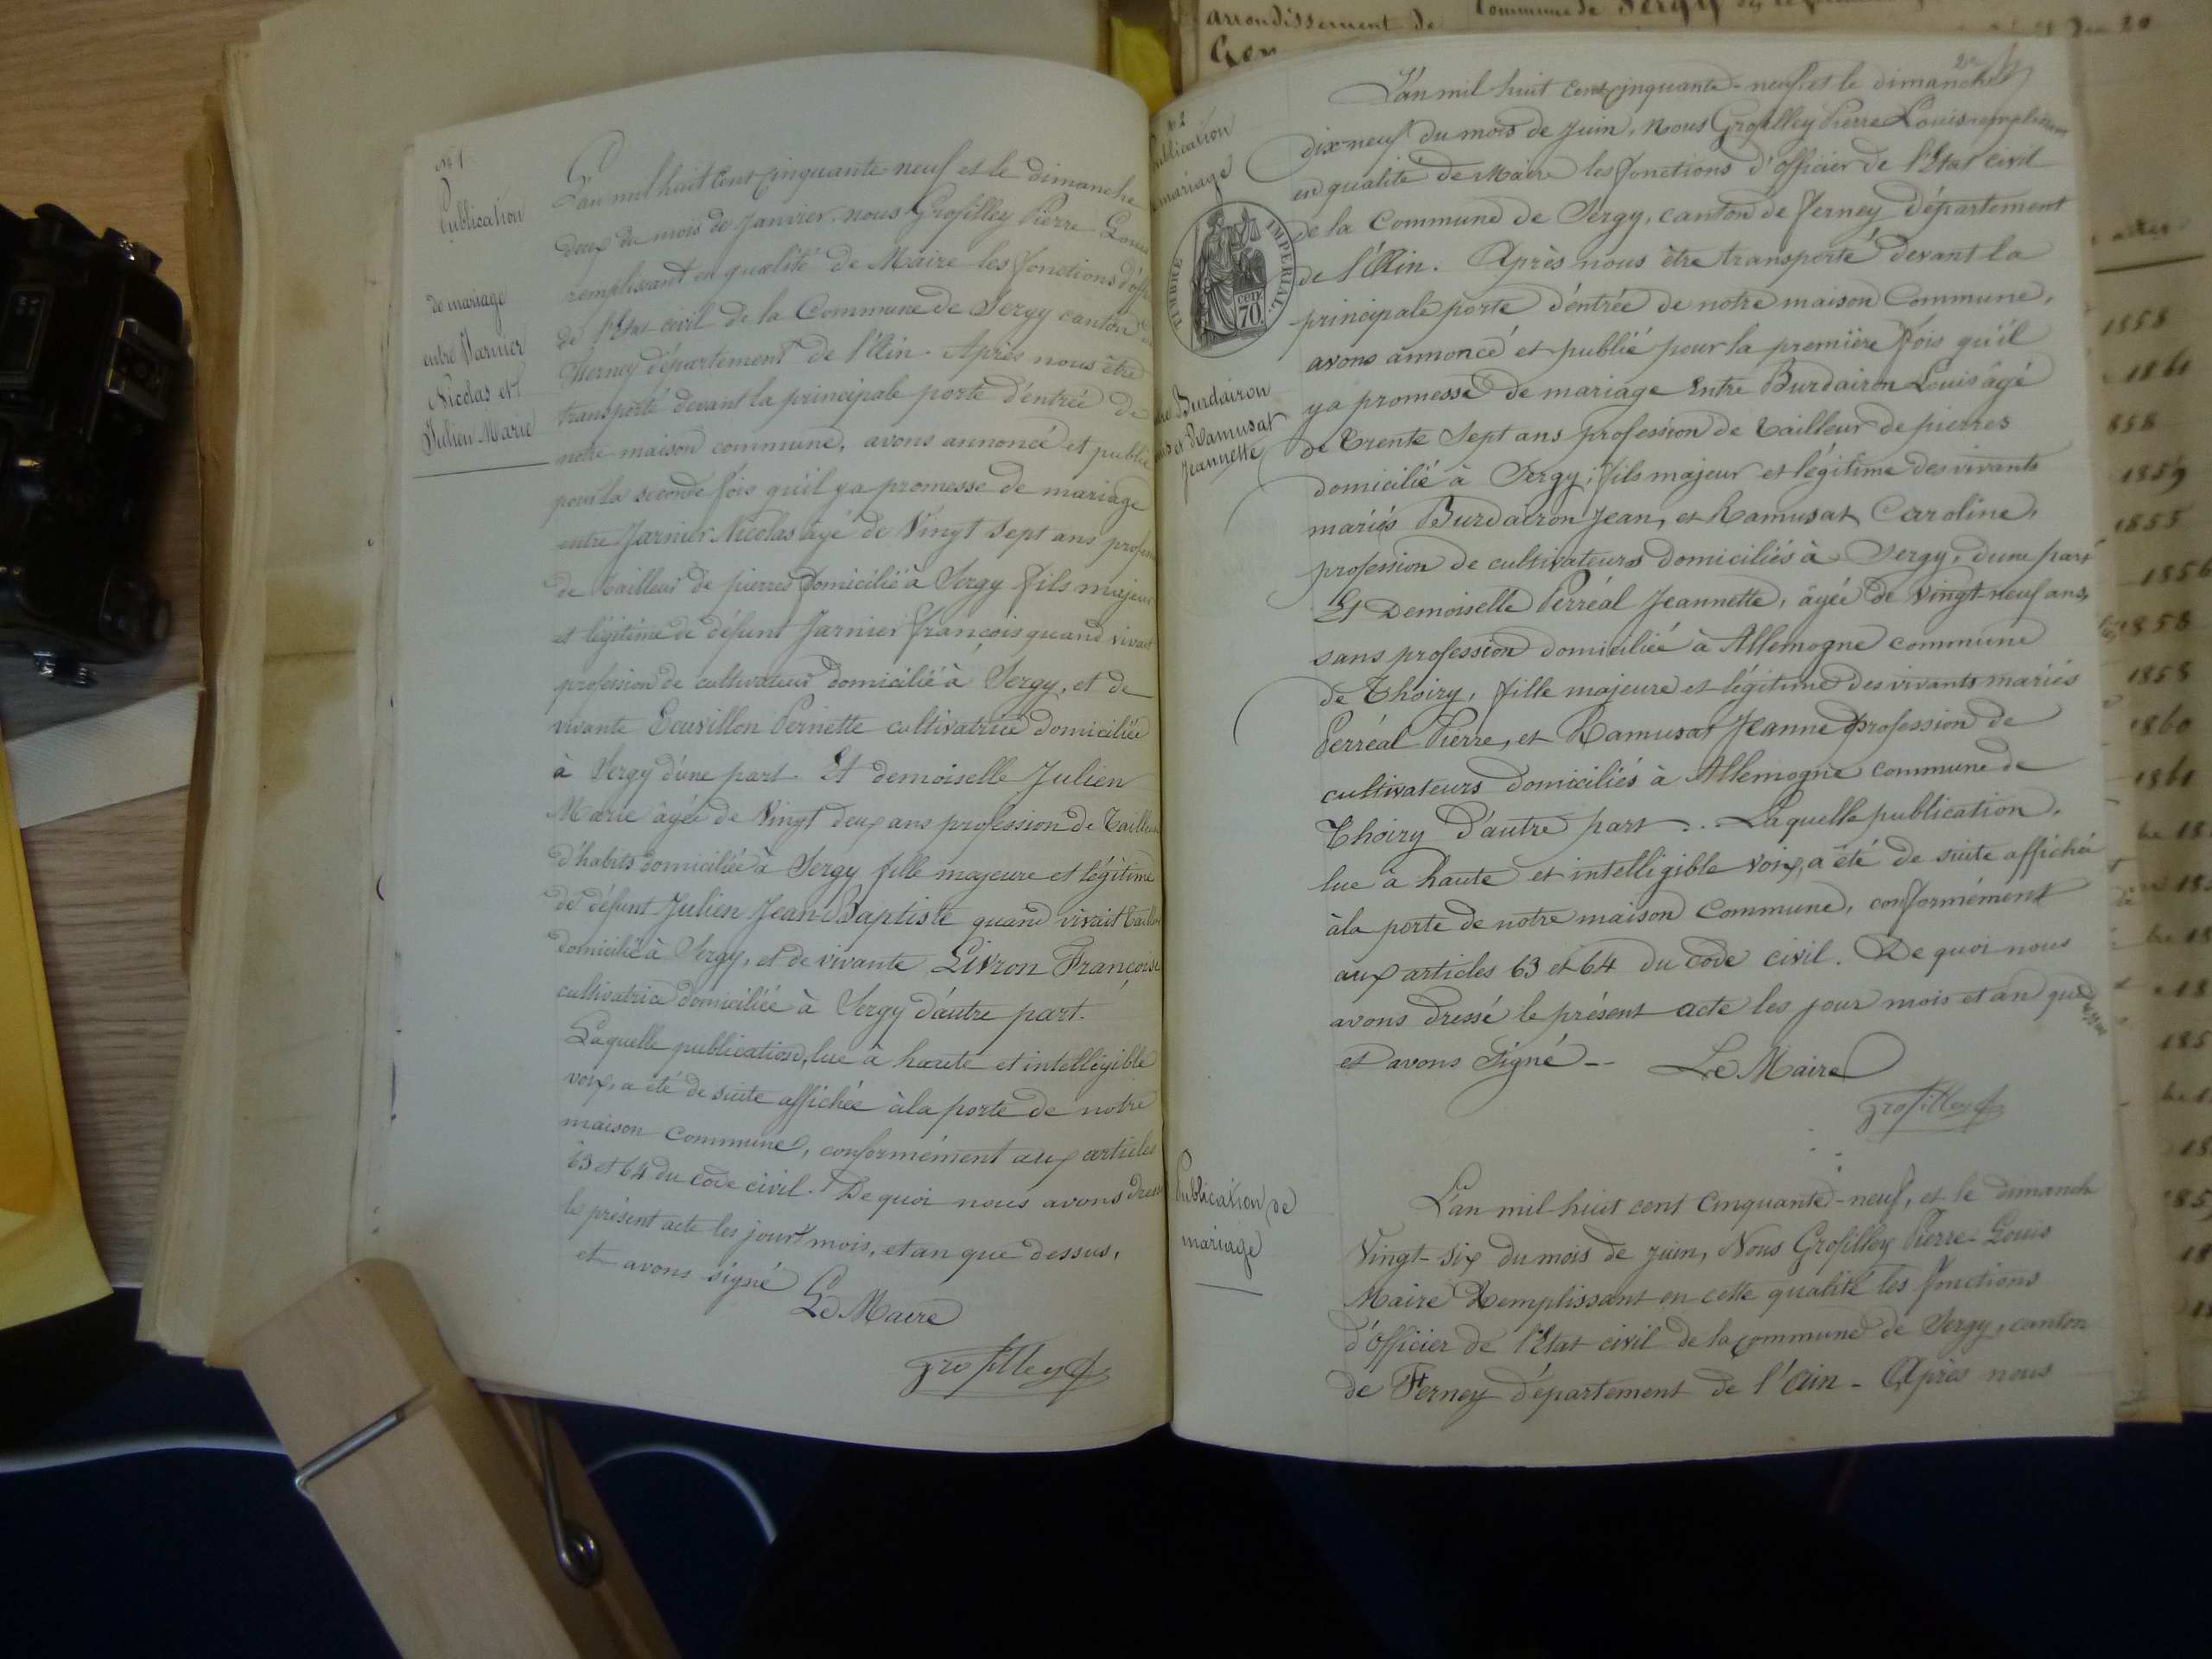 N° 1
Publication
de mariage
entre Jarnier
Nicolas et
Julien Marie
L'an mil huit cent cinquante neuf et le dimanche
deux du mois de Janvier. nous Grosfilley Pierre Louis
remplissant en qualité de Maire les fonctions
de l'Etat civil de la Commune de Sergy canton
Ferney département de l'Ain. Après nous être
transporté devant la principale porte d'entrée de
notre maison commune, avons annoncé et publié
pour la seconde fois qu'il y a promesse de mariage
entre Jarnier Nicolas âgé de Vingt sept ans
de tailleur de pierres domicilié à Sergy fils majeur
et légitime de défunt Jarnier françois quand vivait
profession de cultivateur domicilié à Sergy, et de
vivante Ecuvillon Pernette cultivatrice domiciliée
à Sergy d'une part. Et demoiselle Julien
Marie âgée de Vingt deux ans profession de Tailleuse
d'habits domiciliée à Sergy fille majeure et légitime
de défunt Julien Jean Baptiste quand vivait
domicilié à Sergy, et de vivante Livron Françoise
cultivatrice domiciliée à Sergy d'autre part.
Laquelle publication, lue à haute et intelligible
voix, a été de suite affichée à la porte de notre
maison commune, conformément aux articles
63 et 64 du Code civil. De quoi nous avons dressé
le présent acte les jour mois, et an que dessus,
et avons signé
Le Maire
Grosfilley
N° 2
Publication
mariage
TIMBRE IMPERIAL
cen.
70.
Burdairon
et Ramusat
Jeannette
L'an mil huit cent cinquante-neuf, et le dimanche
dix-neuf du mois de Juin, Nous Grosfilley Pierre Louis remplissant
en qualité de Maire les fonctions d'officier de l'Etat civil
de la Commune de Sergy, canton de Ferney département
de l'Ain. Après nous être transporté devant la
principale porte d'entrée de notre maison Commune,
avons annoncé et publié pour la première fois qu'il
y a promesse de mariage Entre Burdairon Louis âgé
de Trente Sept ans profession de tailleur de pierres
domicilié à Sergy, fils majeur et légitime des vivants
mariés Burdairon Jean, et Ramusat Caroline,
profession de cultivateurs domiciliés à Sergy, d'une part
Et Demoiselle Perréal Jeannette, âgée de Vingt neuf ans,
sans profession domiciliée à Allemogne commune
de Thoiry, fille majeure et légitime des vivants mariés
Perréal Pierre, et Ramusat Jeanne profession de
cultivateurs domiciliés à Allemogne commune de
Thoiry d'autre part. .. Laquelle publication,
lue à haute et intelligible voix, a été de suite affichée
à la porte de notre maison Commune, conformément
aux articles 63 et 64 du Code civil. De quoi nous
avons dressé le présent acte les jour mois et an que
et avons signé -- Le Maire
Grosfilley
Publication de
mariage
L'an mil huit cent Cinquante-neuf, et le dimanche
Vingt-six du mois de Juin, Nous Grosfilley Pierre-Louis
Maire Remplissant en cette qualité les fonctions
d'Officier de l'Etat civil de la commune de Sergy, canton
de Ferney département de l'Ain - Après nous
arrondissement de
Commune de Sergy
Gex
1858
1861
858
1859
1855
1856
1858
1858
1860
1861